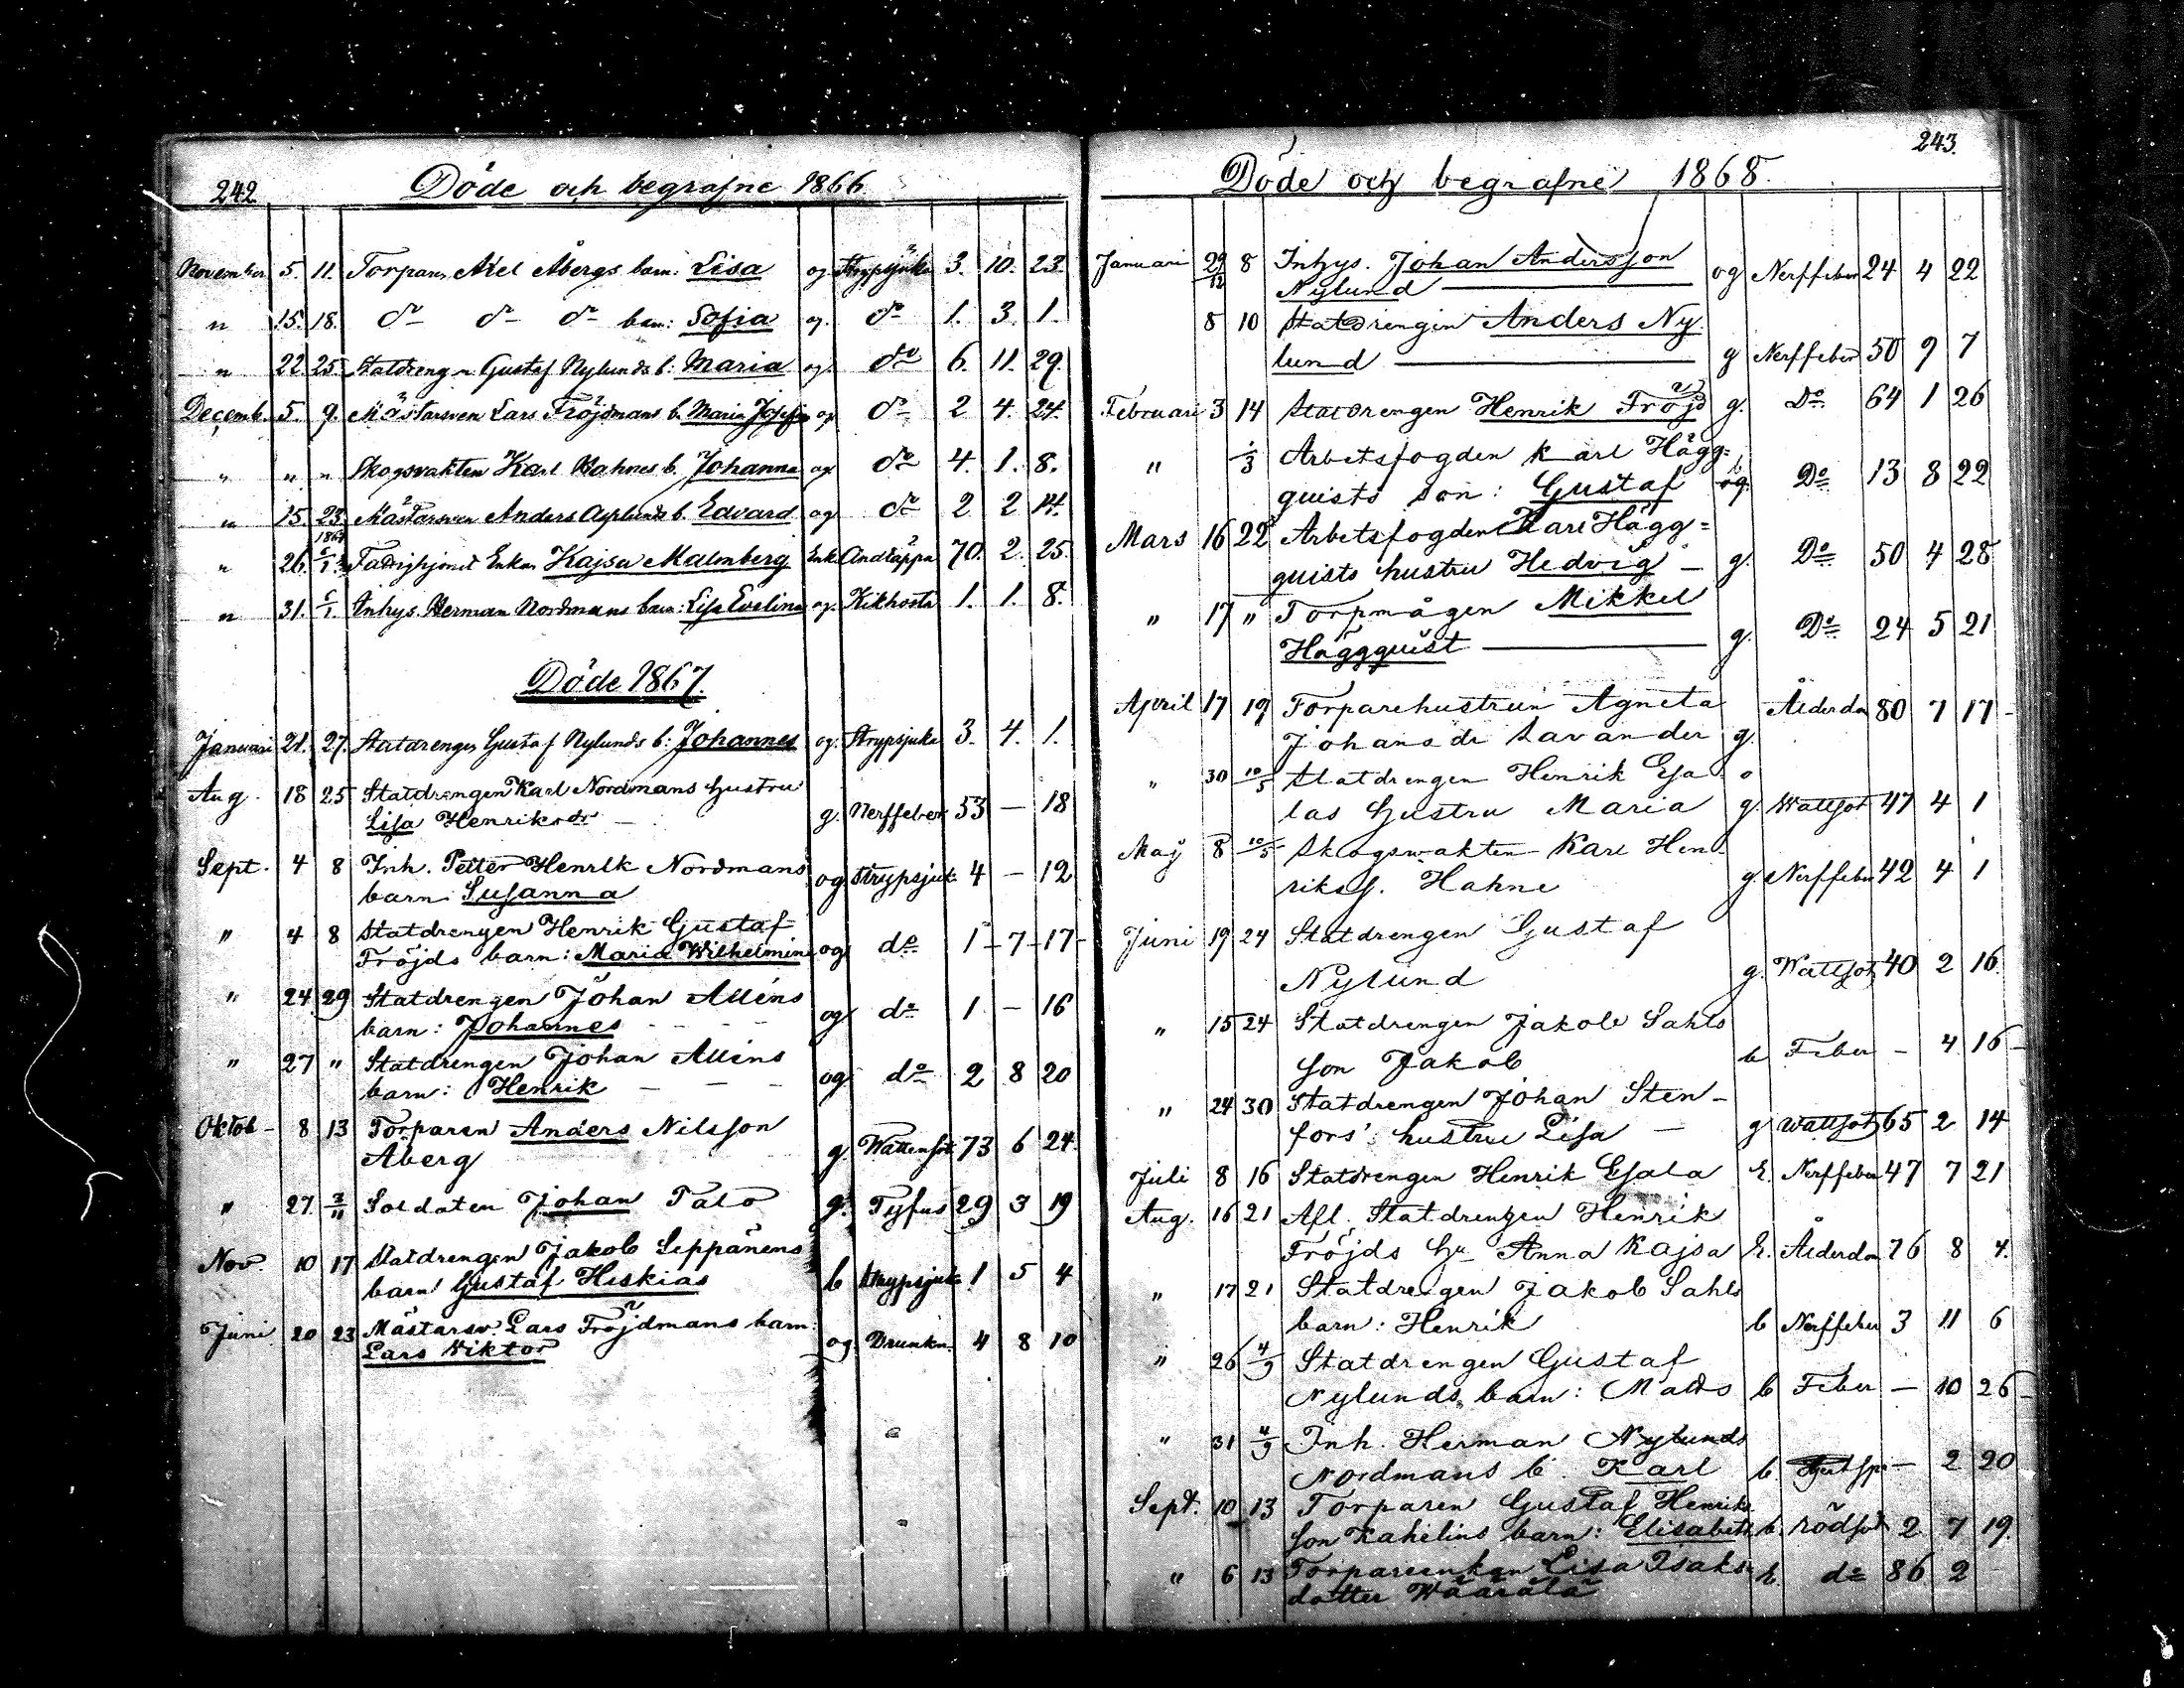 242
Döde och begrafne 1866.
November 5. 11. Torparen Axel Åbergs barn: Lisa og. Strypsjuka 3. 10. 23.
" 15. 18. do do do barn: Sofia og. do 1. 3. 1.
" 22. 25. Statdreng. Gustaf Nylunds b: Maria og. do 6. 11. 29.
Decemb. 5. 9. Mästarsven Lars Fröjdmans b. Maria Josefin og do 2 4. 24.
" " " Skogsvakten Karl Hahnes b. Johanna og do 4. 1. 8.
" 15. 23. Mästarsven Anders Asplunds b. Edvard og do 2 2 14.
1867
" 26. Enkan Kajsa Malmberg Enk. Andtäppa 70. 2. 25.
" 31. 6/1. Inhys. Herman Nordmans barn: Lisa Evelina og. Kikhosta 1. 1. 8.
Döde 1867.
Januari 21. 27. Statdrengen Gustaf Nylunds b: Johannes og. Strypsjuka 3. 4. 1.
Aug. 18 25 Statdrengen Karl Nordmans hustru
Lisa Henriksdr — g. Nerffeber 53 — 18
Sept. 4 8 Inh. Petter Henrik Nordmans
barn Susanna og Strypsjuk 4 — 12
" 4 8 Statdrengen Henrik Gustaf
Fröjds barn: Maria Wilhelmina og do 1 - 7 - 17 -
" 24 29 Statdrengen Johan Alléns
barn: Johannes - - - og do 1 — 16
" 27 " Statdrengen Johan Alléns
barn: Henrik — — — og do 2 8 20
Oktob - 8 13 Torparen Anders Nilsson
Åberg g. Wattensot 73 6 24.
" 27. 3/11 Soldaten Johan Palo g. Tyfus 29 3 19
Nov. 10 17 Statdrengen Jakob Seppänens
barn Gustaf Hiskias b Strypsjuk 1 5 4
Juni 20 23 Mästarsv. Lars Fröjdmans barn:
Lars Wiktor og Drunkn. 4 8 10
243.
Döde och begrafne 1868.
Januari 29/12 8 Inhys. Johan Andersson
Nylund — og Nerffeber 24 4 22
8 10 Statdrengen Anders Ny-
lund — g Nerffeber 50 9 7
Februari 3 14 Statdrengen Henrik Fröjd g. Do 64 1 26
" 1/3 Arbetsfogden Karl Hägg=
quists son: Gustaf og. Do 13 8 22
Mars 16 22 Arbetsfogden Karl Hägg=
quists hustru Hedvig — g. Do 50 4 28
" 17 " Torpmågen Mikkel
Häggquist — g. Do 24 5 21
April 17 19 Torparehustrun Agneta Ålderdom 80 7 17 -
Johansdr Savander g.
" 30 10/5 Statdrengen Henrik Esa-
las hustru Maria g. Wattsot 47 4 1
Maj 8 10/5 Skogswakten Karl Hen-
rikss. Hahne g. Nerffeber 42 4 1
Juni 19 24 Statdrengen Gustaf
Nylund g. Wattsot 40 2 16
" 15 24 Statdrengen Jakob Sahls
son Jakob b Feber - 4 16 -
" 24 30 Statdrengen Johan Sten-
fors' hustru Lisa — g Wattsot 65 2 14
Juli 8 16 Statdrengen Henrik Esala E. Nerffeber 47 7 21
Aug. 16 21 Afl. Statdrengen Henrik
Fröjds hu Anna Kajsa E. Ålderdom 76 8 4.
" 17 21 Statdrengen Jakob Sahls
barn: Henrik b Nerffeber 3 11 6
" 26 4/9 Statdrengen Gustaf
Nylunds barn: Matts b Feber — 10 26 -
" 31 4/9 Inh. Herman Nylunds
Nordmans b. Karl b. — 2 20
Sept. 10 13 Torparen Gustaf Henriks
son Kahelins barn: Elisabeth b. rödsot 2 7 19.
" 6 13 Torpareenkan Lisa Isaks-
dotter Wäärälä E. do 86 2